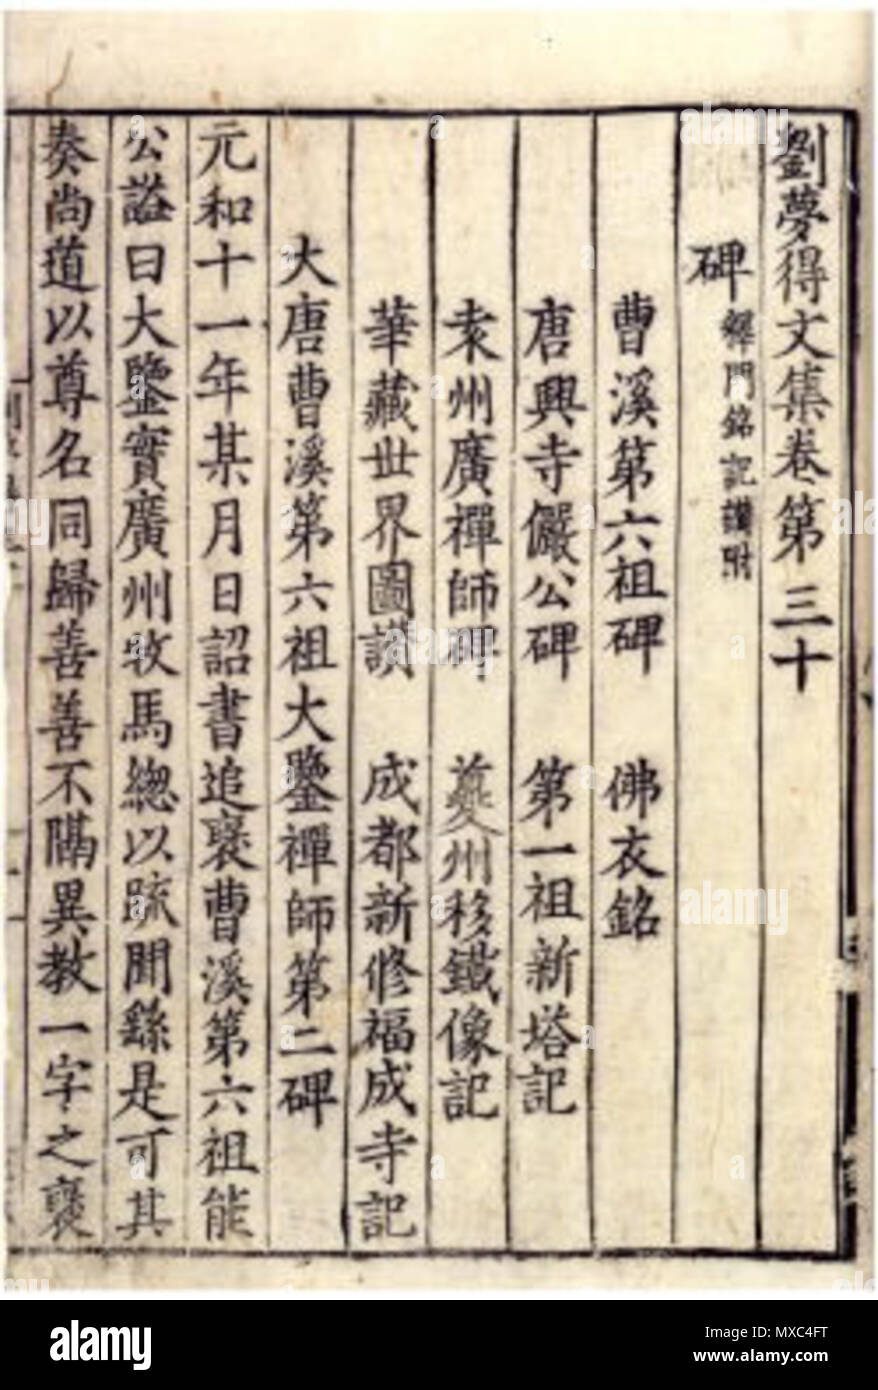 劉夢得文集卷第三十
碑 釋門銘記讚附
曹溪第六祖碑 佛衣銘
唐興寺儼公碑 第一祖新塔記
袁州廣禪師碑 夔州移鐵像記
華藏世界圖讃 成都新修福成寺記
大唐曹溪第六祖大鑒禪師第二碑
元和十一年某月日詔書追襃曹溪第六祖能
公謚曰大鑒實廣州牧馬緫以疏聞繇是可其
奏尚道以尊名同歸善善不隔異教一字之襃
alamy
Image ID: MXC4FT
www.alamy.com